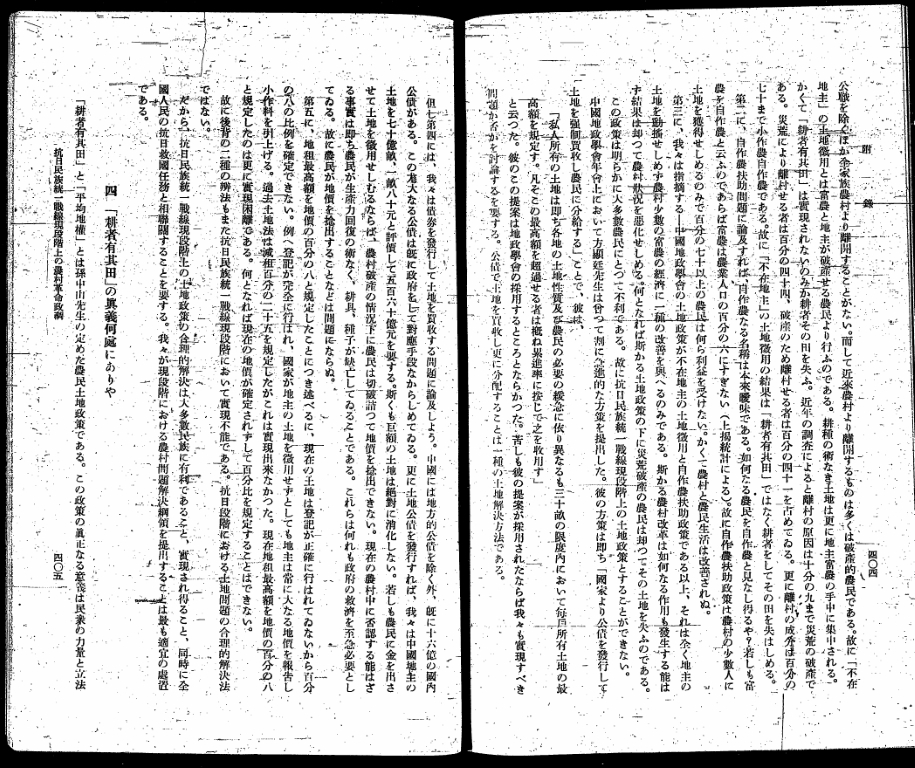 附錄
四〇四
公職を除くほか全家族農村より離開することがない。而して近來農村より離開するものは多くは破產的農民である。故に「不在
地主」の土地徵用とは富農と地主が破產せる農民より行ふのである。耕種の術なき土地は更に地主富農の手中に集中される。
かくて「耕者有其田」は實現されないのみか耕者その田を失ふ。近年の調查によると離村の原因は十分の九まで災荒の破產で
ある。災荒により離村せる者は百分の四十四、破產のため離村せる者は百分の四十一を占めてゐる。更に離村の成分は百分の
七十まで小作農自作農である。故に「不在地主」の土地徵用の結果は「耕者有其田」ではなく耕者をしてその田を失はしめる。
第二に、自作農扶助問題に論及すれば、自作農なる名稱は本來曖昧である。如何なる農民を自作農と見なし得るや?若しも富
農を自作農と云ふのであらば富農は農業人口の百分の六にすぎない(上揭統計による)。故に自作農扶助政策は農村の少數人に
土地を獲得せしめるのみで百分の七十以上の農民は何ら利益を受けない。かくて農村と農民生活は改善されぬ。
第三に、我々は指摘する—中國地政學會の土地政策が不在地主の土地徵用と自作農扶助政策である以上、それは全く地主の
土地を動搖せしめず農村少數の富農の經濟に一種の改善を與へるのみである。斯かる農村改革は如何なる作用も發生する能は
ず結果は却つて農村狀況を惡化せしめる。何となれば斯かる土地政策の下に災荒破產の農民は却つてその土地を失ふのである。
この政策は明らかに大多數農民にとつて不利である。故に抗日民族統一戰線現段階上の土地政策とすることができない。
中國地政學會年會上において方顯廷先生は曾つて一割に急進的な方策を提出した。彼の方策は即ち「國家より公債を發行して
土地を强制買收し農民に分給する」ことで、彼は、
「私人所有の土地は即ち各地の土地性質及び農民の必要の緩急に依り異なるも三十畝の限度內において每戶所有土地の最
高額を規定す。凡そこの最高額を超過せる者は概ね累進率に按じて之を收用す」
と云つた。彼のこの提案は地政學會の採用するところとならかつた。若しも彼の提案が採用されたならば我々も實現すべき
問題か否かを討論するを要する。公債で土地を買收し更に分配することは一種の土地解決方法である。
但七第四には、我々は債券を發行して土地を買收する問題に論及しよう。中國には地方的公債を除く外、旣に十六億の國內
公債がある。この尨大なる公債は旣に政府をして對應手段なからしめてゐる。更に土地公債を發行すれば、我々は中國地主の
土地を七十億畝、一畝八十元と評價して五百六十億元を要する。斯くも巨額の土地は絕對に消化しない。若しも農民に金を出さ
せて土地を徵用せしむるならば、農村破產の情況下に農民は切破詰つて地價を捻出できない。現在の農村中に否認する能はざ
る事實は即ち農民が生產力回復の術なく、耕具、種子が缺乏してゐることである。これらは何れも政府の救濟を至急必要とし
てゐる。故に農民が地價を捻出することなどは問題にならぬ。
第五に、地租最高額を地價の百分の八と規定したことにつき述べるに、現在の土地は登記が正確に行はれてゐないから百分
の八の比例を確定できない。例へ登記が完全に行はれ、國家が地主の土地を徵用せずとしても地主は常に大なる地價を報告し
小作料を引上げる。過去土地法は減租百分の二十五を規定したがこれは實現出來なかつた。現在地租最高額を地價の百分の八
と規定したのは更に實現困難である。何となれば現在の地價が確定されずして百分比を規定することはできない。
故に後背の二種の辨法もまた抗日民族統一戰線現段階において實現不能である。抗日段階における土地問題の合理的解決法
ではない。
だから、抗日民族統一戰線現段階上の土地政策の合理的解決は人多數民族に有利であること、實現され得ること、同時に全
國人民の抗日救國任務と相聯關することを要する。我々が現段階における農村問題解決綱領を提出することは最も適宜の處置
である。
四 「耕者有其田」の眞義何處にありや
「耕者有其田」と「平均地權」とは孫中山先生の定めた農民土地政策である。この政策の眞正なる意義は民衆の力量と立法
抗日民族統一戰線現段階上の農村革命政綱
四〇五